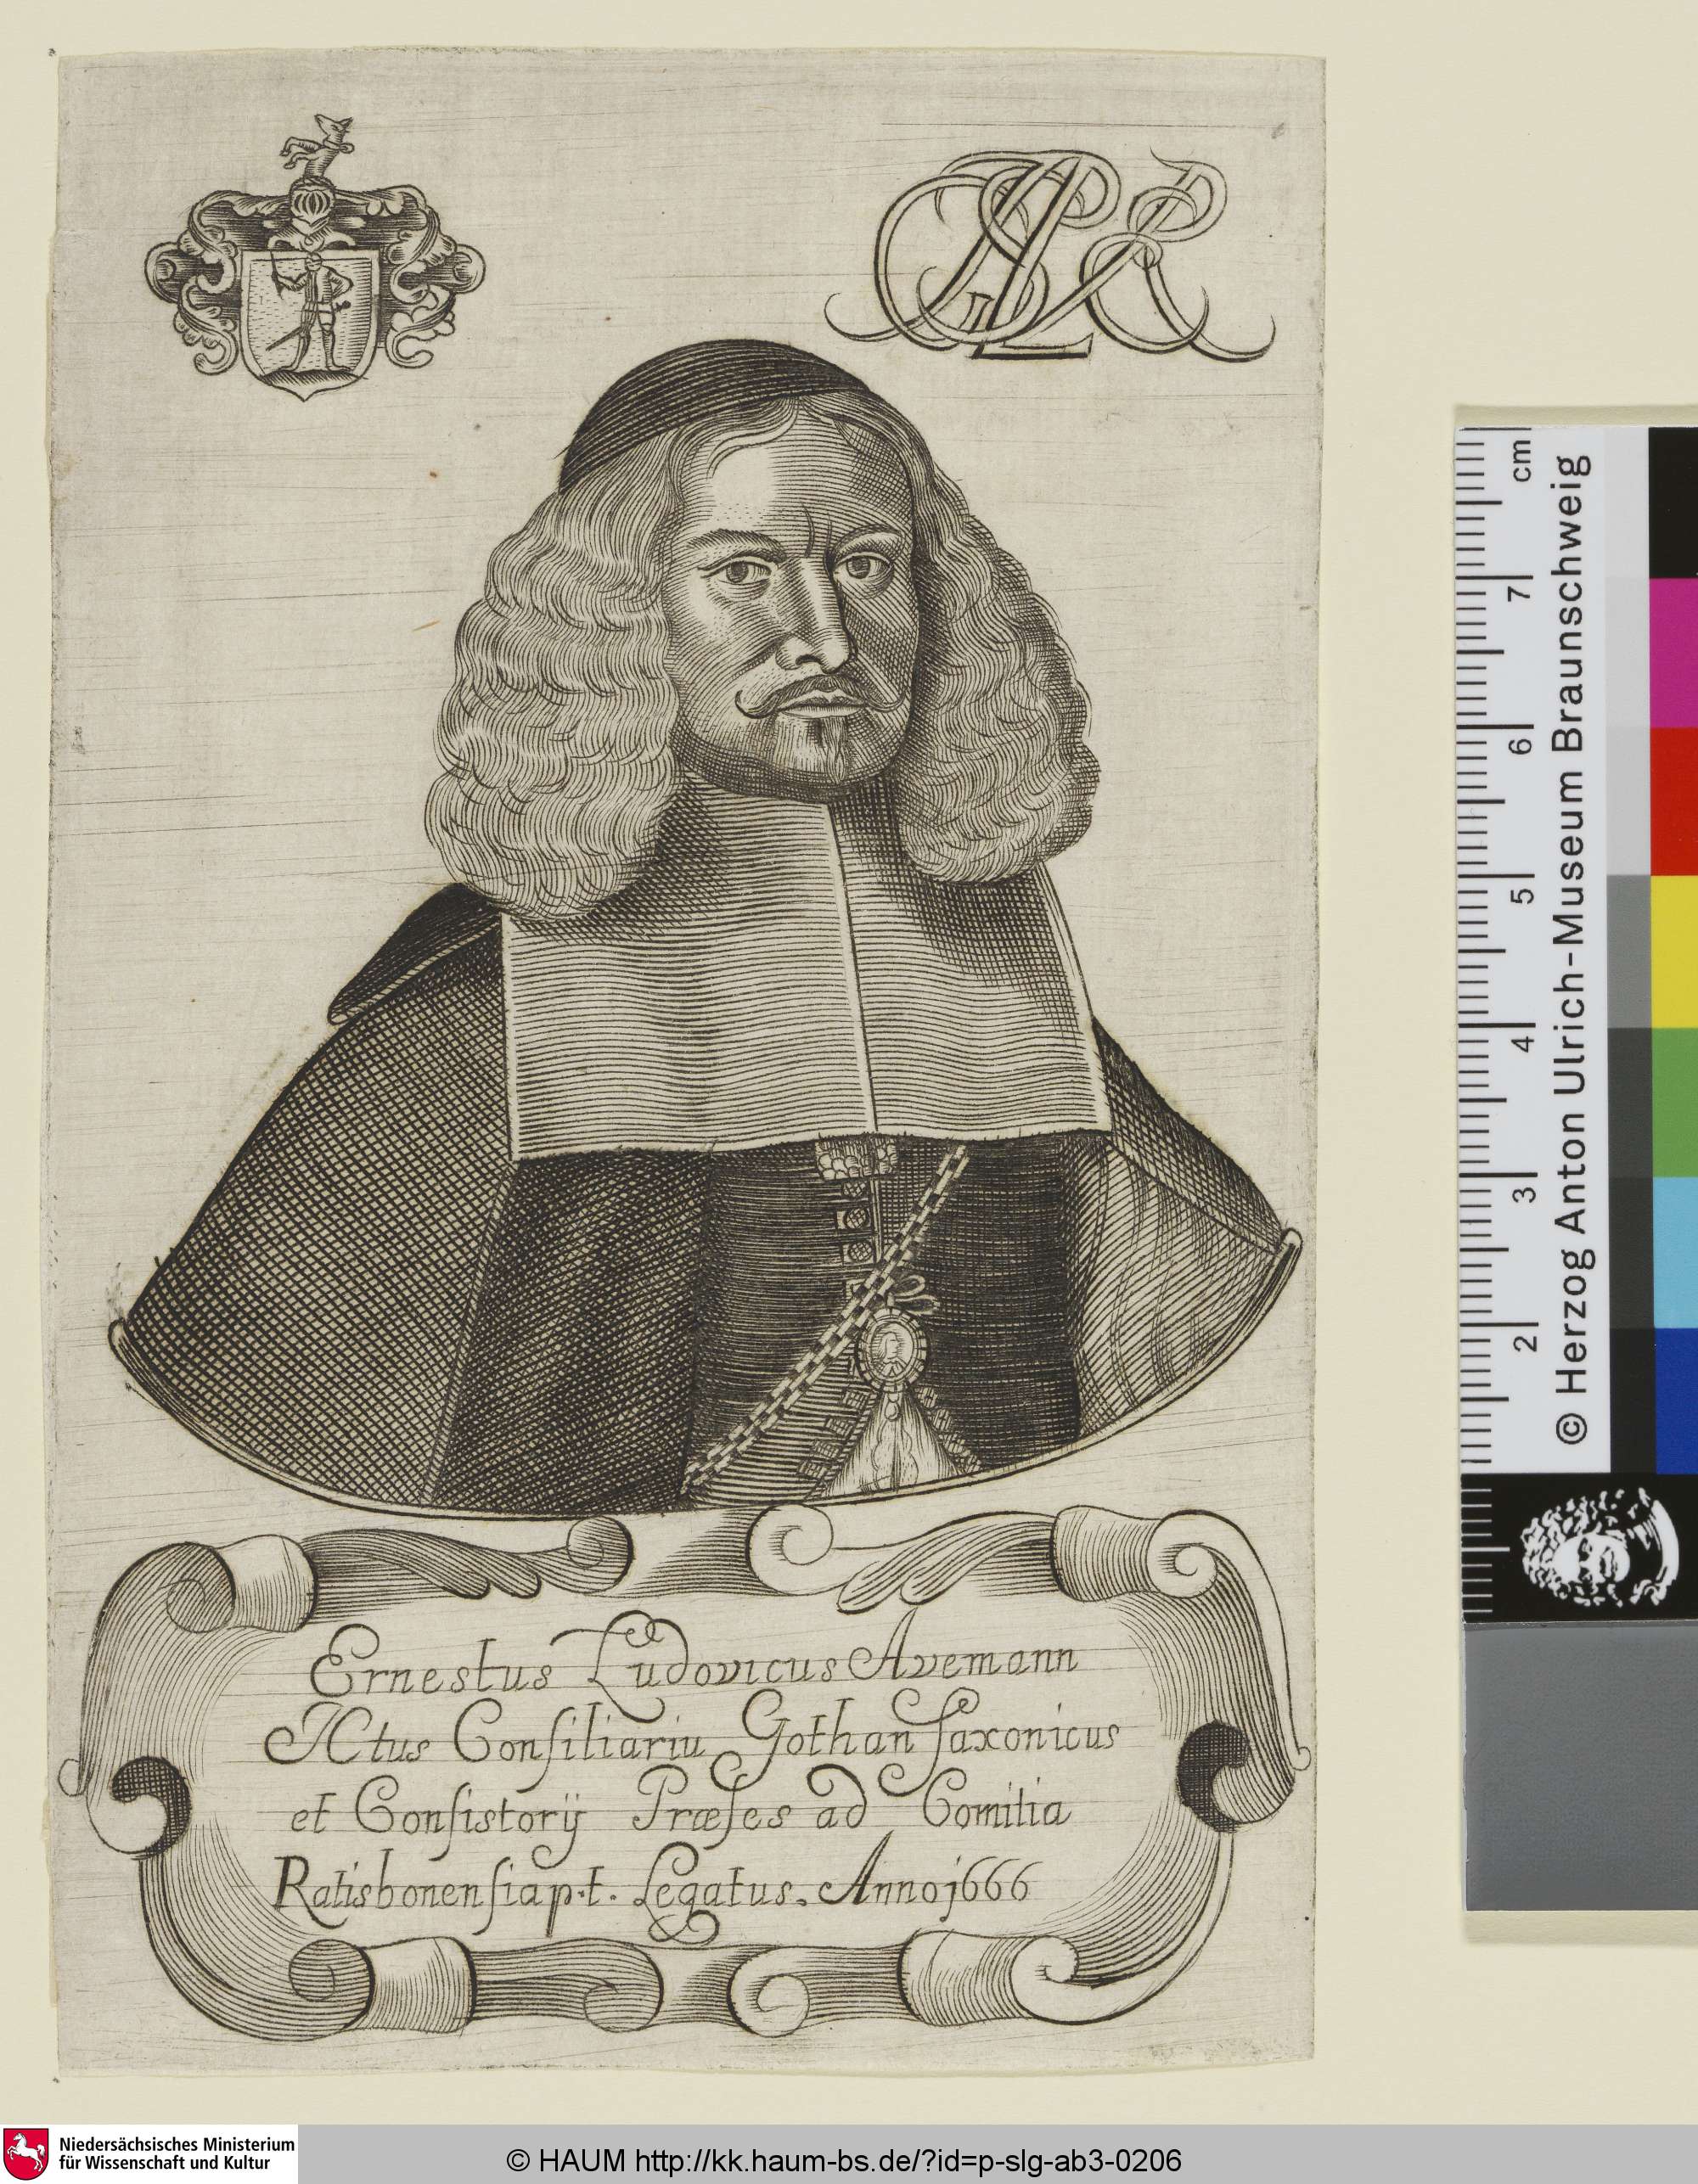 Ernestus Ludovicus Avemann
JCtus Consiliariu Gothan Saxonicus
et Consistorij Præses ad Comitia
Ratisbonensia p.t. Legatus. Anno j666
cm
7
6
5
4
3
2
© Herzog Anton Ulrich-Museum Braunschweig
Niedersächsisches Ministerium
für Wissenschaft und Kultur
© HAUM http://kk.haum-bs.de/?id=p-slg-ab3-0206